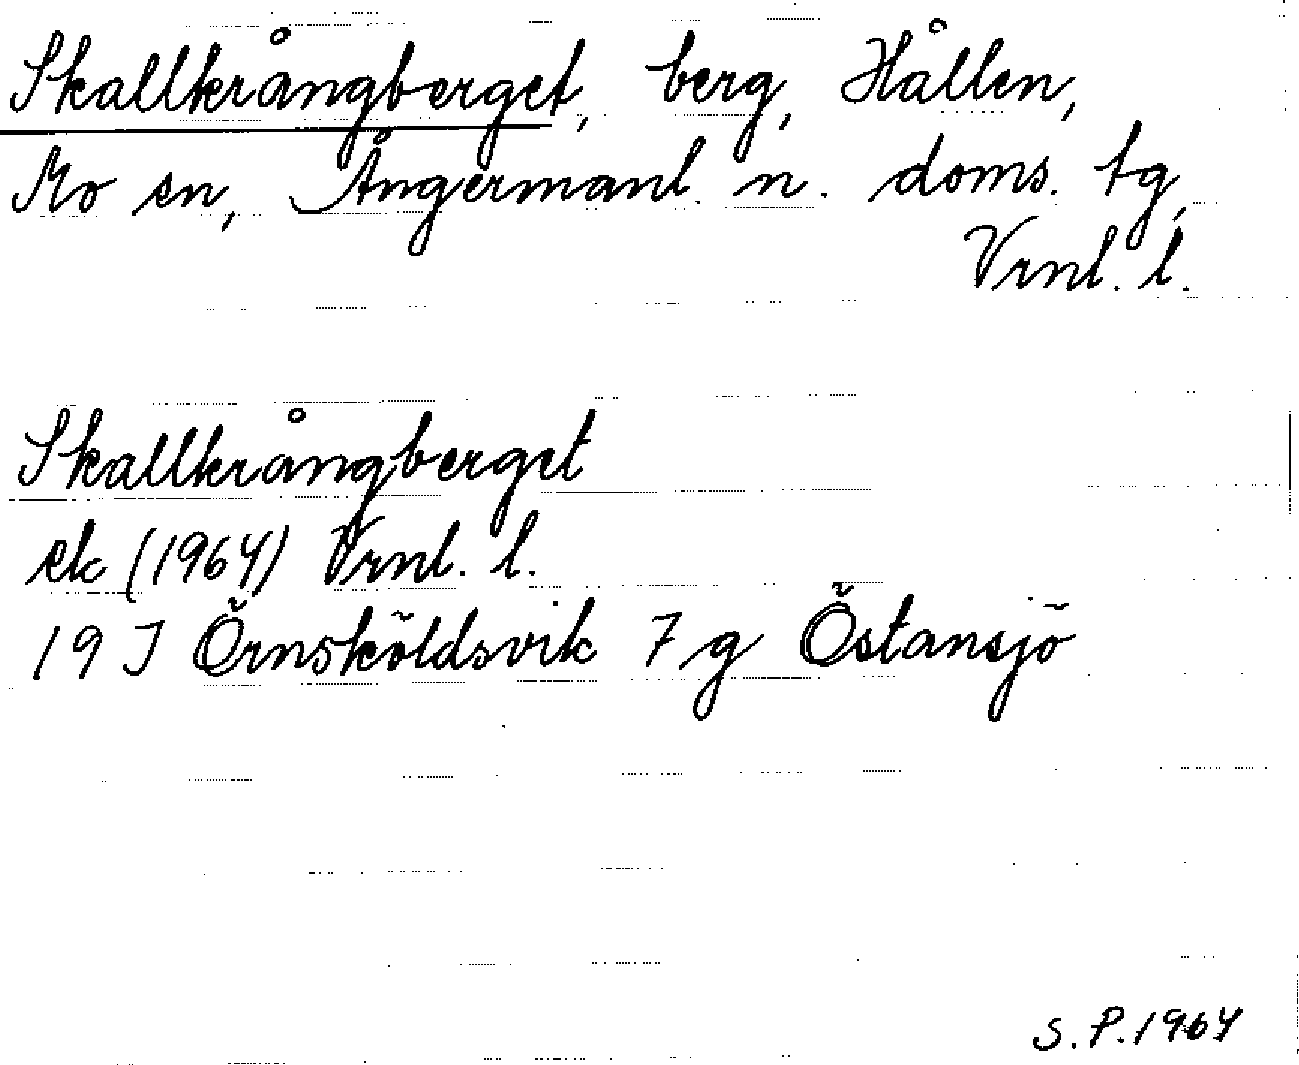 Skallkrångberget, berg, Hållen,
Mo sn, Ångermanl. n. doms. tg,
Vrnl. l.
Skallkrångberget
ek (1964) Vrnl. l.
19 J Örnsköldsvik 7 g Östansjö
S. P. 1964